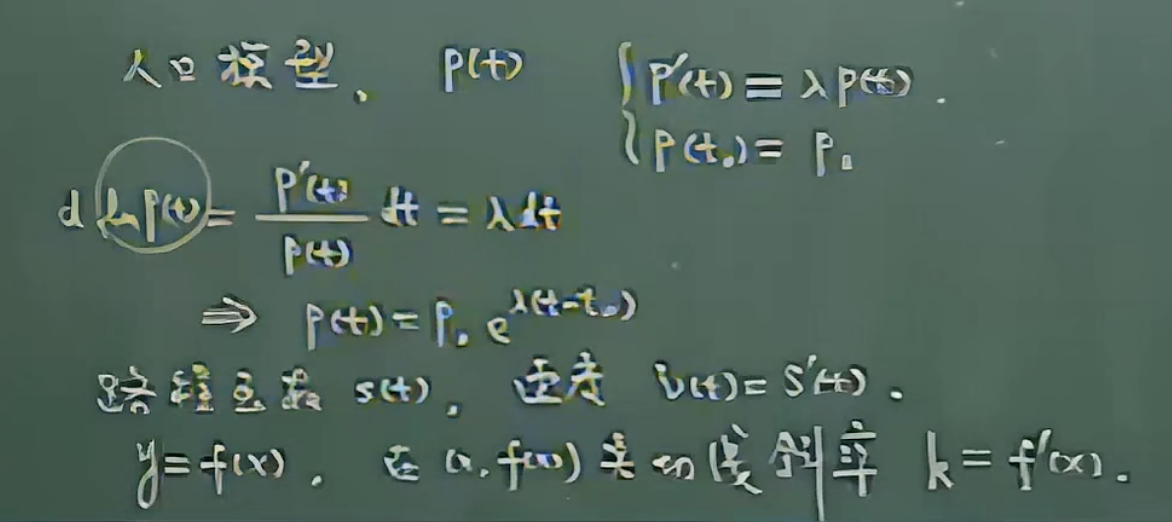 人口模型. p(t) { p'(t) = λp(t).
{ p(t₀) = p₀
d ln p(t) = p'(t)/p(t) dt = λdt
⇒ p(t) = p₀ e^{λ(t-t₀)}
路程 s(t). 速度 v(t) = s'(t).
y = f(x). 在 (x, f(x)) 切线斜率 k = f'(x).